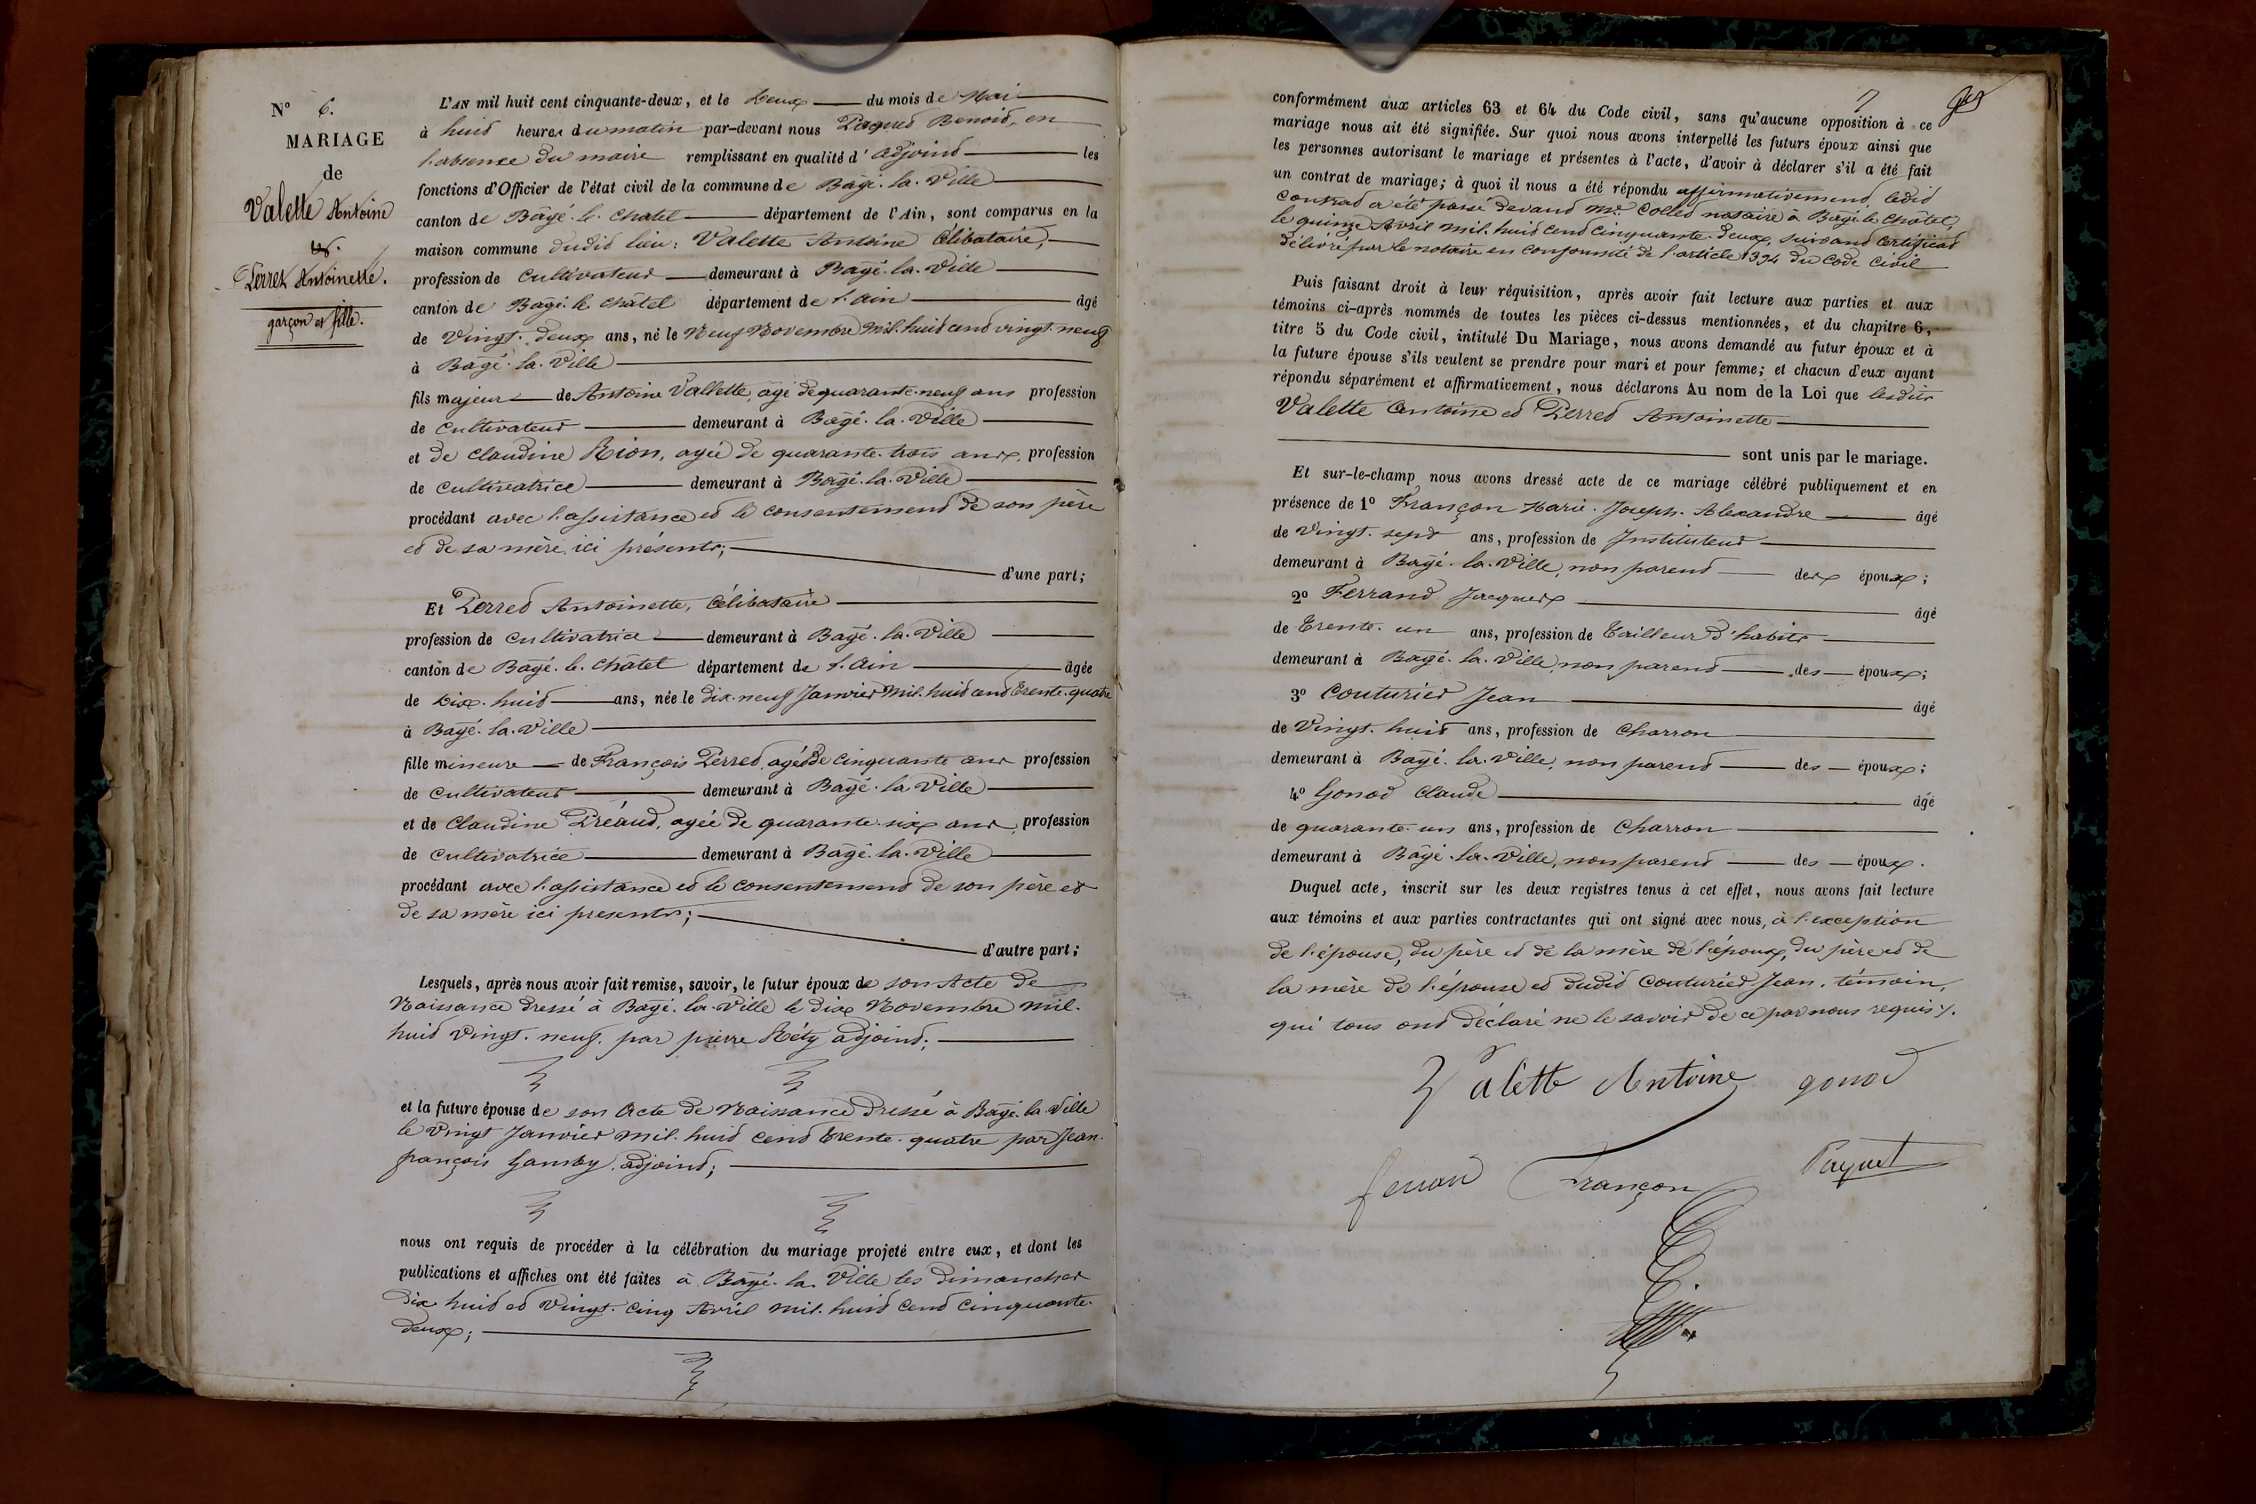 N° 6.
MARIAGE
de
Valette Antoine
et
Perret Antoinette.
garçon et fille.
L'AN mil huit cent cinquante-deux, et le deux du mois de Mai
à huit heures du matin par-devant nous Paquet Benoit, en
l'absence du maire remplissant en qualité d'adjoint les
fonctions d'Officier de l'état civil de la commune de Bâgé-la-Ville
canton de Bâgé-le-Chatel département de l'Ain, sont comparus en la
maison commune dudit lieu: Valette Antoine Célibataire,
profession de Cultivateur demeurant à Bâgé-la-Ville
canton de Bâgé-le-Châtel département de l'Ain âgé
de Vingt-deux ans, né le Neuf Novembre mil-huit cent vingt-neuf
à Bâgé-la-Ville
fils majeur de Antoine Vallette, âgé de quarante-neuf ans profession
de Cultivateur demeurant à Bâgé-la-Ville
et de Claudine Rion, agée de quarante-trois ans, profession
de Cultivatrice demeurant à Bâgé-la-Ville
procédant avec l'assistance et le consentement de son père
et de sa mère ici présents;
d'une part;
Et Perret Antoinette, Célibataire
profession de Cultivatrice demeurant à Bâgé-la-Ville
canton de Bâgé-le-Châtel département de l'Ain âgée
de Dix-huit ans, née le dix-neuf Janvier mil-huit cent trente-quatre
à Bâgé-la-Ville
fille mineure de François Perret, agé de cinquante ans profession
de Cultivateur demeurant à Bâgé-la-Ville
et de Claudine Préaud, agée de quarante-six ans, profession
de Cultivatrice demeurant à Bâgé-la-Ville
procédant avec l'assistance et le consentement de son père et
de sa mère ici présents;
d'autre part;
Lesquels, après nous avoir fait remise, savoir, le futur époux de son Acte de
Naissance dressé à Bâgé-la-Ville le dix Novembre mil-
huit vingt-neuf par pierre Réty adjoint;
et la future épouse de son Acte de Naissance dressé à Bâgé-la-Ville
le Vingt Janvier mil-huit cent trente-quatre par Jean-
françois adjoint;
nous ont requis de procéder à la célébration du mariage projeté entre eux, et dont les
publications et affiches ont été faites à Bâgé-la-Ville les dimanches
dix huit et vingt-cinq Avril mil-huit cent cinquante-
deux;
7
conformément aux articles 63 et 64 du Code civil, sans qu'aucune opposition à ce
mariage nous ait été signifiée. Sur quoi nous avons interpellé les futurs époux ainsi que
les personnes autorisant le mariage et présentes à l'acte, d'avoir à déclarer s'il a été fait
un contrat de mariage; à quoi il nous a été répondu affirmativement, ledit
Contrat a été passé devant Me. Collet notaire à Bâgé-le-Châtel,
le quinze Avril mil-huit cent cinquante-deux, suivant certificat
délivré par le notaire en conformité de l'article 1394 du Code Civil
Puis faisant droit à leur réquisition, après avoir fait lecture aux parties et aux
témoins ci-après nommés de toutes les pièces ci-dessus mentionnées, et du chapitre 6,
titre 5 du Code civil, intitulé Du Mariage, nous avons demandé au futur époux et à
la future épouse s'ils veulent se prendre pour mari et pour femme; et chacun d'eux ayant
répondu séparément et affirmativement, nous déclarons Au nom de la Loi que lesdits
Valette Antoine et Perret Antoinette
sont unis par le mariage.
Et sur-le-champ nous avons dressé acte de ce mariage célébré publiquement et en
présence de 1° Françon Marie-Joseph-Alexandre âgé
de Vingt-sept ans, profession de Instituteur
demeurant à Bâgé-la-Ville, non parent des époux;
2° Ferrand Jacques âgé
de Trente-un ans, profession de Tailleur d'habits
demeurant à Bâgé-la-Ville, non parent des époux;
3° Couturier Jean âgé
de Vingt-huit ans, profession de Charron
demeurant à Bâgé-la-Ville, non parent des époux;
4° Gonod Claude âgé
de quarante-un ans, profession de Charron
demeurant à Bâgé-la-Ville, non parent des époux.
Duquel acte, inscrit sur les deux registres tenus à cet effet, nous avons fait lecture
aux témoins et aux parties contractantes qui ont signé avec nous, à l'exception
de l'épouse, du père et de la mère de l'époux, du père et de
la mère de l'épouse et dudit Couturier Jean, témoin,
qui tous ont déclaré ne le savoir de ce par nous requis.
Valette Antoine gonod
ferran Françon Paquet